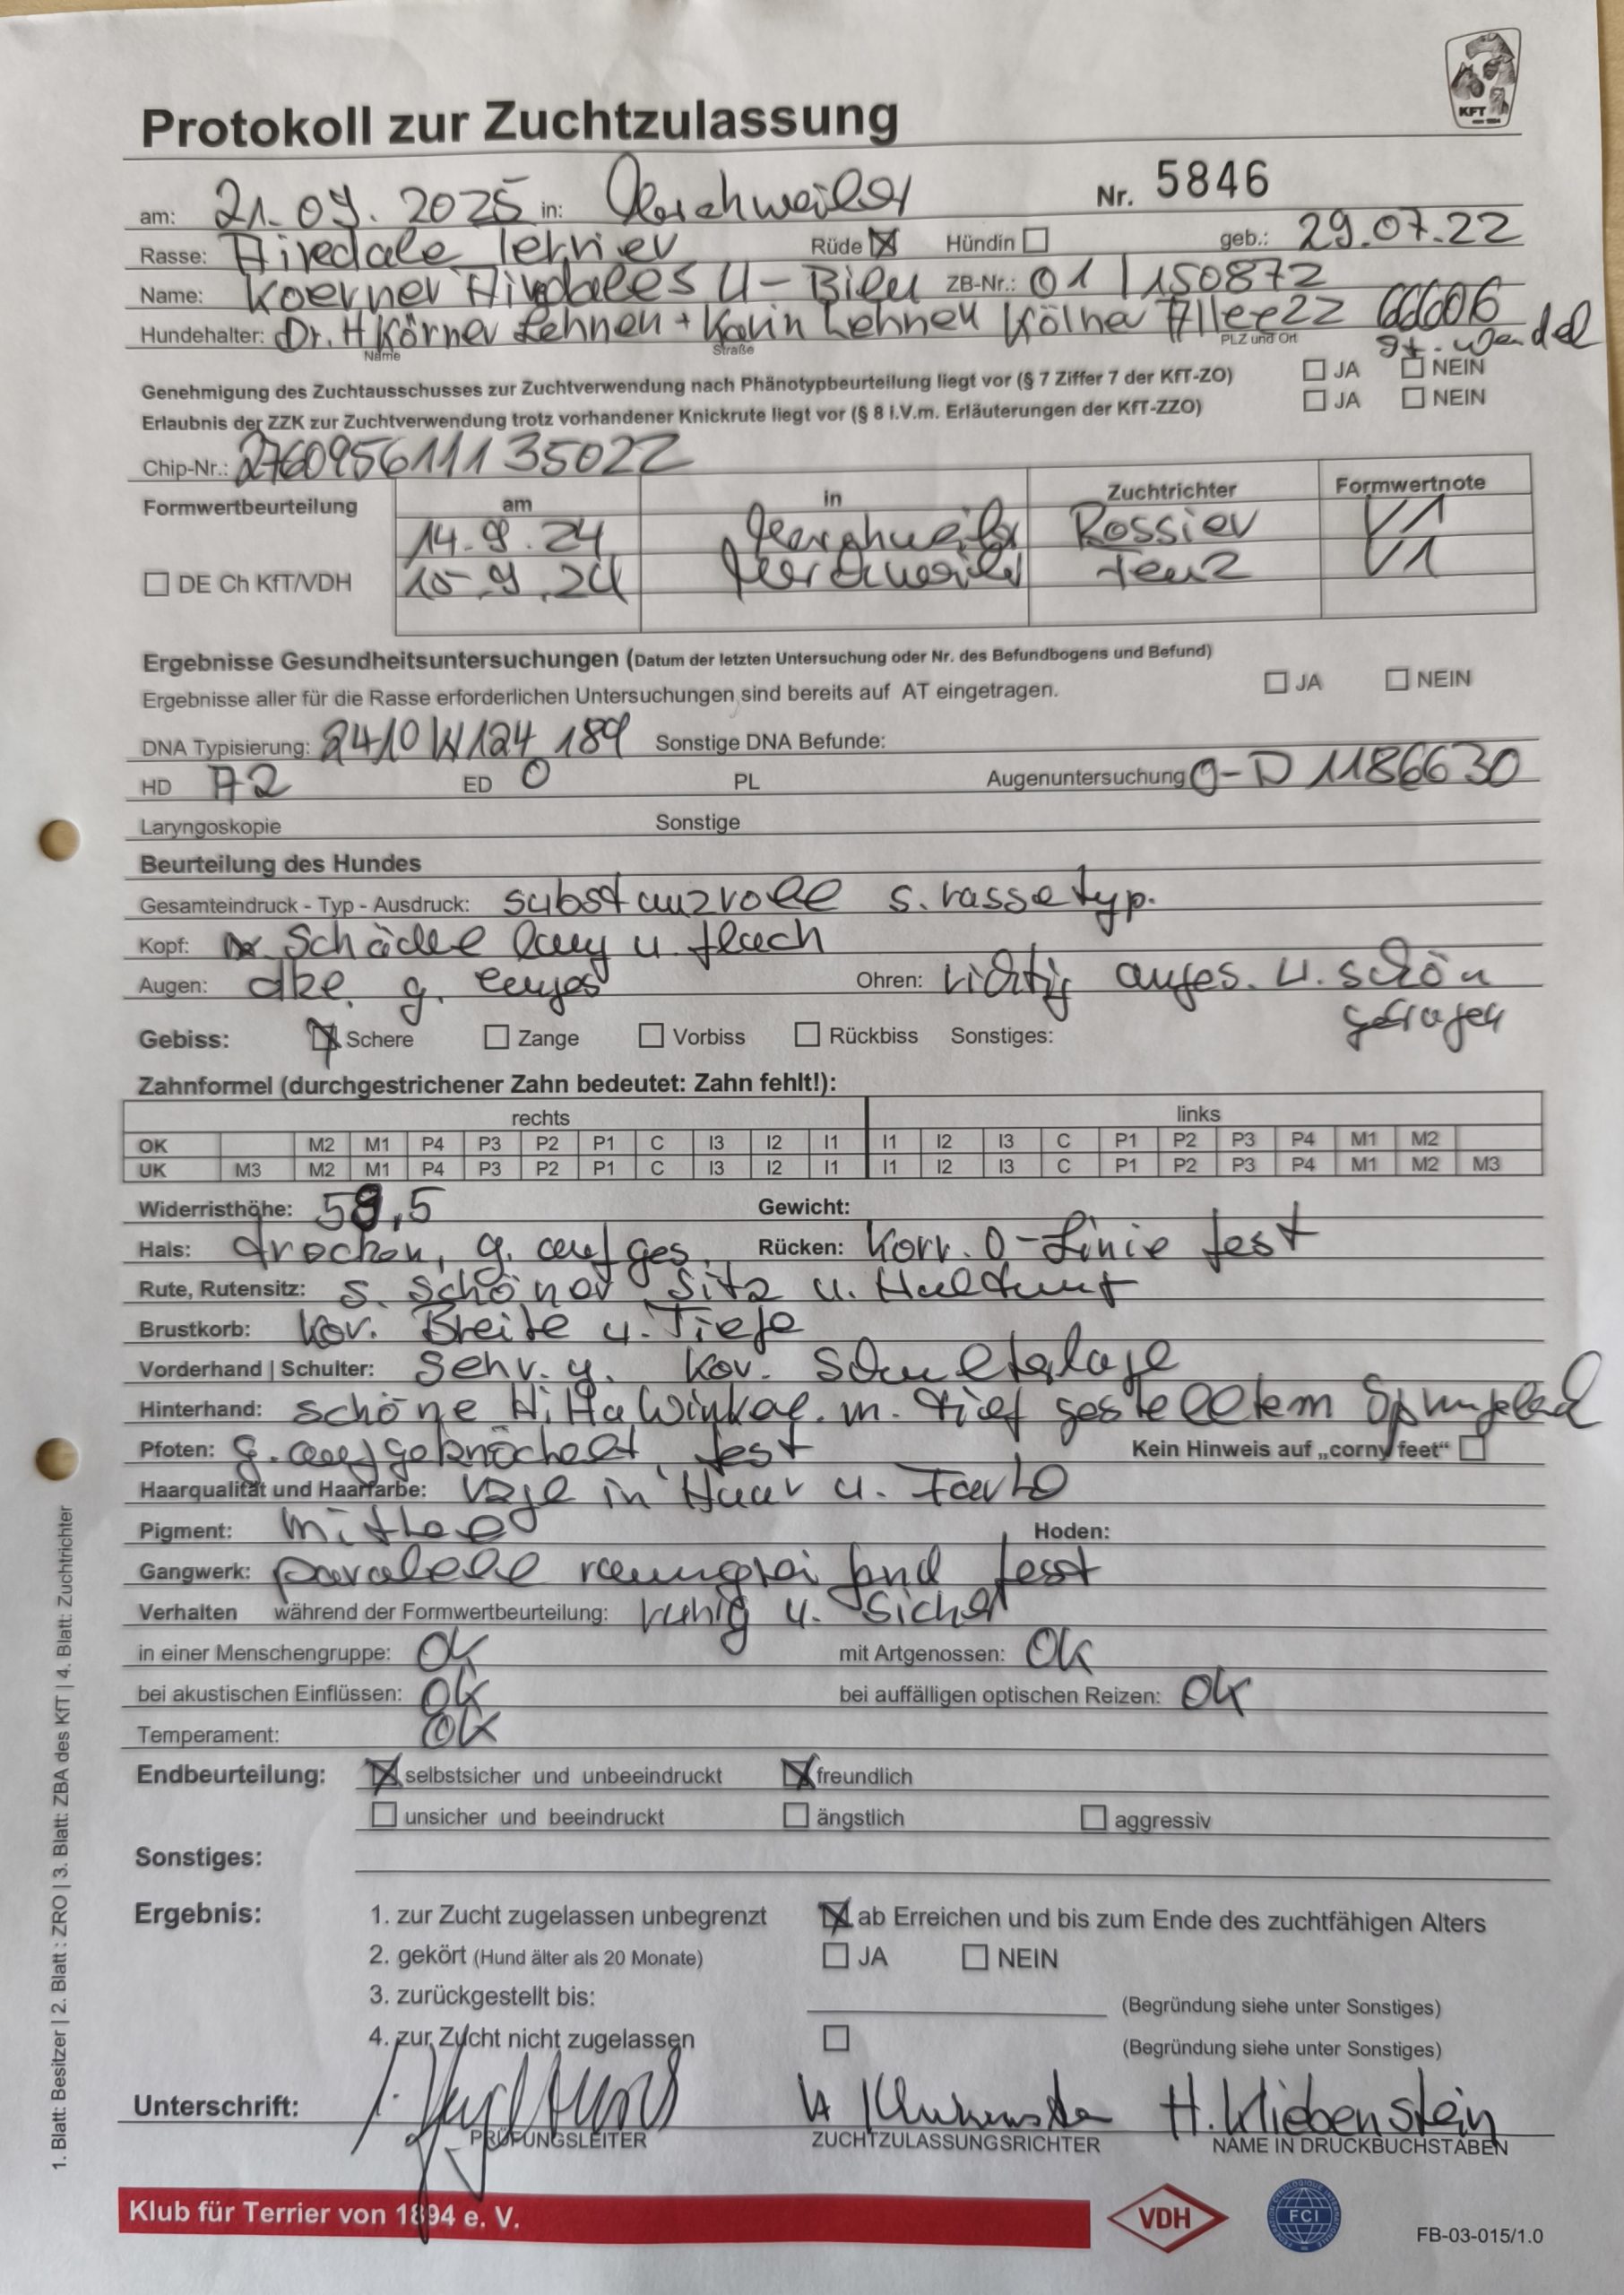 KFT
Protokoll zur Zuchtzulassung
am: 21.09.2025 in: Merchweiler Nr. 5846
Rasse: Airedale Terrier Rüde ☒ Hündin ☐ geb.: 29.07.22
Name: Koerner Airdales U-Bieu ZB-Nr.: 01/150872
Hundehalter: Dr. H Körner Lehnen + Karin Lehnen Kölner Allee 22 66606
Name Straße PLZ und Ort St. Wendel
Genehmigung des Zuchtausschusses zur Zuchtverwendung nach Phänotypbeurteilung liegt vor (§ 7 Ziffer 7 der KfT-ZO) ☐ JA ☐ NEIN
Erlaubnis der ZZK zur Zuchtverwendung trotz vorhandener Knickrute liegt vor (§ 8 I.V.m. Erläuterungen der KfT-ZZO) ☐ JA ☐ NEIN
Chip-Nr.: 276095611135022
Formwertbeurteilung am in Zuchtrichter Formwertnote
14.9.24 Merchweiler Rossier V1
☐ DE Ch KfT/VDH 15.9.24 Merchweiler V1
Ergebnisse Gesundheitsuntersuchungen (Datum der letzten Untersuchung oder Nr. des Befundbogens und Befund)
Ergebnisse aller für die Rasse erforderlichen Untersuchungen sind bereits auf AT eingetragen. ☐ JA ☐ NEIN
DNA Typisierung: 2410 W124 189 Sonstige DNA Befunde:
HD A2 ED 0 PL Augenuntersuchung O-D 1186630
Laryngoskopie Sonstige
Beurteilung des Hundes
Gesamteindruck - Typ - Ausdruck: substanzvoll s. rassetyp.
Kopf: Schädel lang u. flach
Augen: dkl. g. Ohren: richtig anges. u. schön
getragen
Gebiss: ☒ Schere ☐ Zange ☐ Vorbiss ☐ Rückbiss Sonstiges:
Zahnformel (durchgestrichener Zahn bedeutet: Zahn fehlt!):
rechts links
OK M2 M1 P4 P3 P2 P1 C I3 I2 I1 I1 I2 I3 C P1 P2 P3 P4 M1 M2
UK M3 M2 M1 P4 P3 P2 P1 C I3 I2 I1 I1 I2 I3 C P1 P2 P3 P4 M1 M2 M3
Widerristhöhe: 59,5 Gewicht:
Hals: trocken, g. aufges. Rücken: Korr. O-Linie fest
Rute, Rutensitz: s. schöner Sitz u. Haltung
Brustkorb: kor. Breite u. Tiefe
Vorderhand | Schulter: sehr. g. kor. Schulterlage
Hinterhand: schöne Hi. Ha. Winkel. m. tief gestelltem Sprunggelenk
Pfoten: g. aufgeknöchelt, fest Kein Hinweis auf „corny feet“ ☐
Haarqualität und Haarfarbe: in Haar u. Farbe
Pigment: mittel Hoden:
Gangwerk: paralell raumgreifend fest
Verhalten während der Formwertbeurteilung: ruhig u. sicher
in einer Menschengruppe: OK mit Artgenossen: OK
bei akustischen Einflüssen: OK bei auffälligen optischen Reizen: OK
Temperament: OK
Endbeurteilung: ☒ selbstsicher und unbeeindruckt ☒ freundlich
☐ unsicher und beeindruckt ☐ ängstlich ☐ aggressiv
Sonstiges:
Ergebnis: 1. zur Zucht zugelassen unbegrenzt ☒ ab Erreichen und bis zum Ende des zuchtfähigen Alters
2. gekört (Hund älter als 20 Monate) ☐ JA ☐ NEIN
3. zurückgestellt bis: (Begründung siehe unter Sonstiges)
4. zur Zucht nicht zugelassen ☐ (Begründung siehe unter Sonstiges)
Unterschrift: H. Kliebenstein
PRÜFUNGSLEITER ZUCHTZULASSUNGSRICHTER NAME IN DRUCKBUCHSTABEN
Klub für Terrier von 1894 e. V. VDH FCI
FB-03-015/1.0
1. Blatt: Besitzer | 2. Blatt : ZRO | 3. Blatt: ZBA des KfT | 4. Blatt: Zuchtrichter